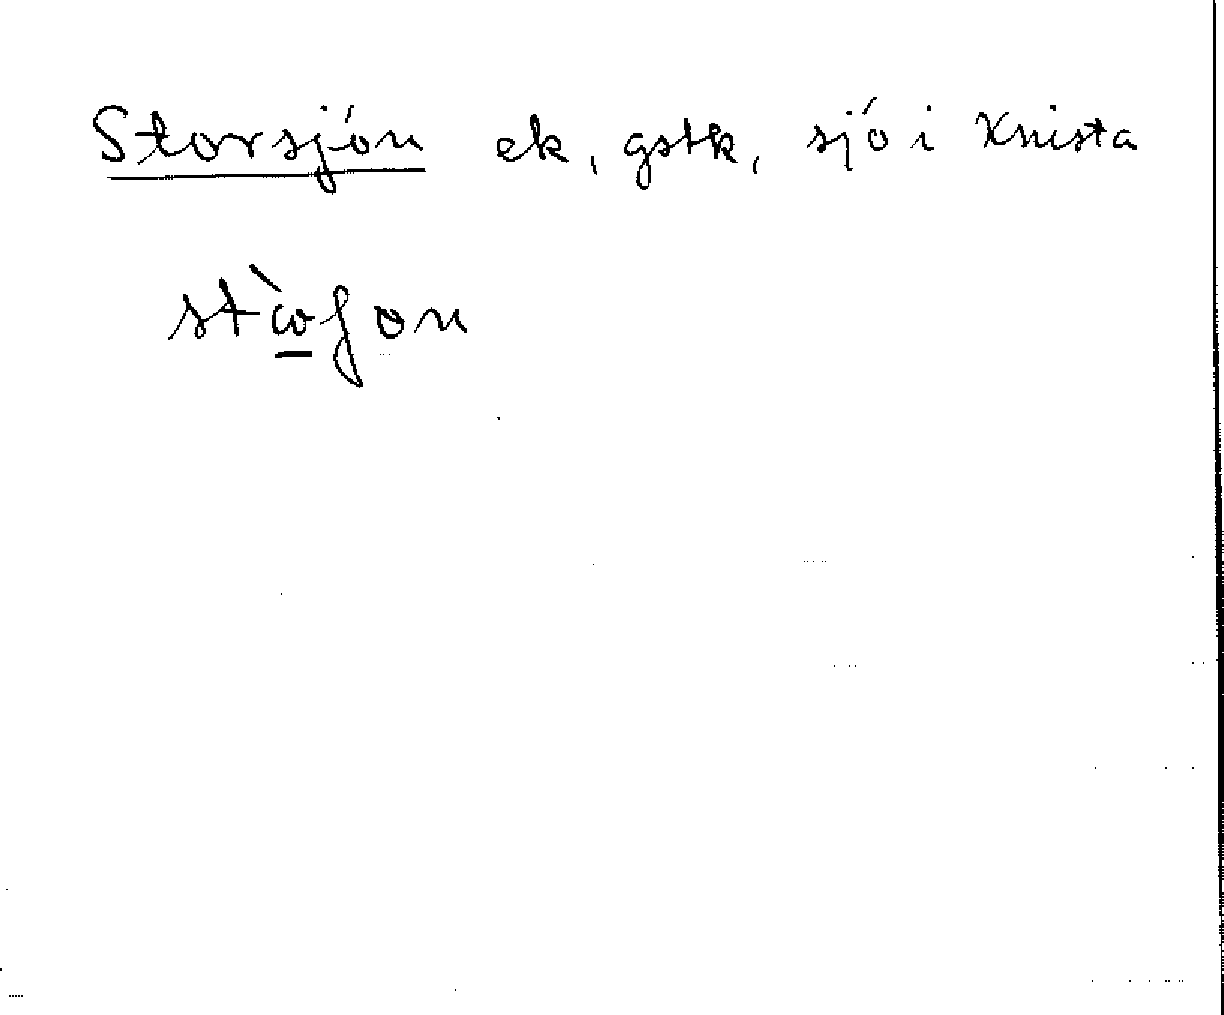 Storsjón ek, gstk, sjó i Knista
stὼʃon